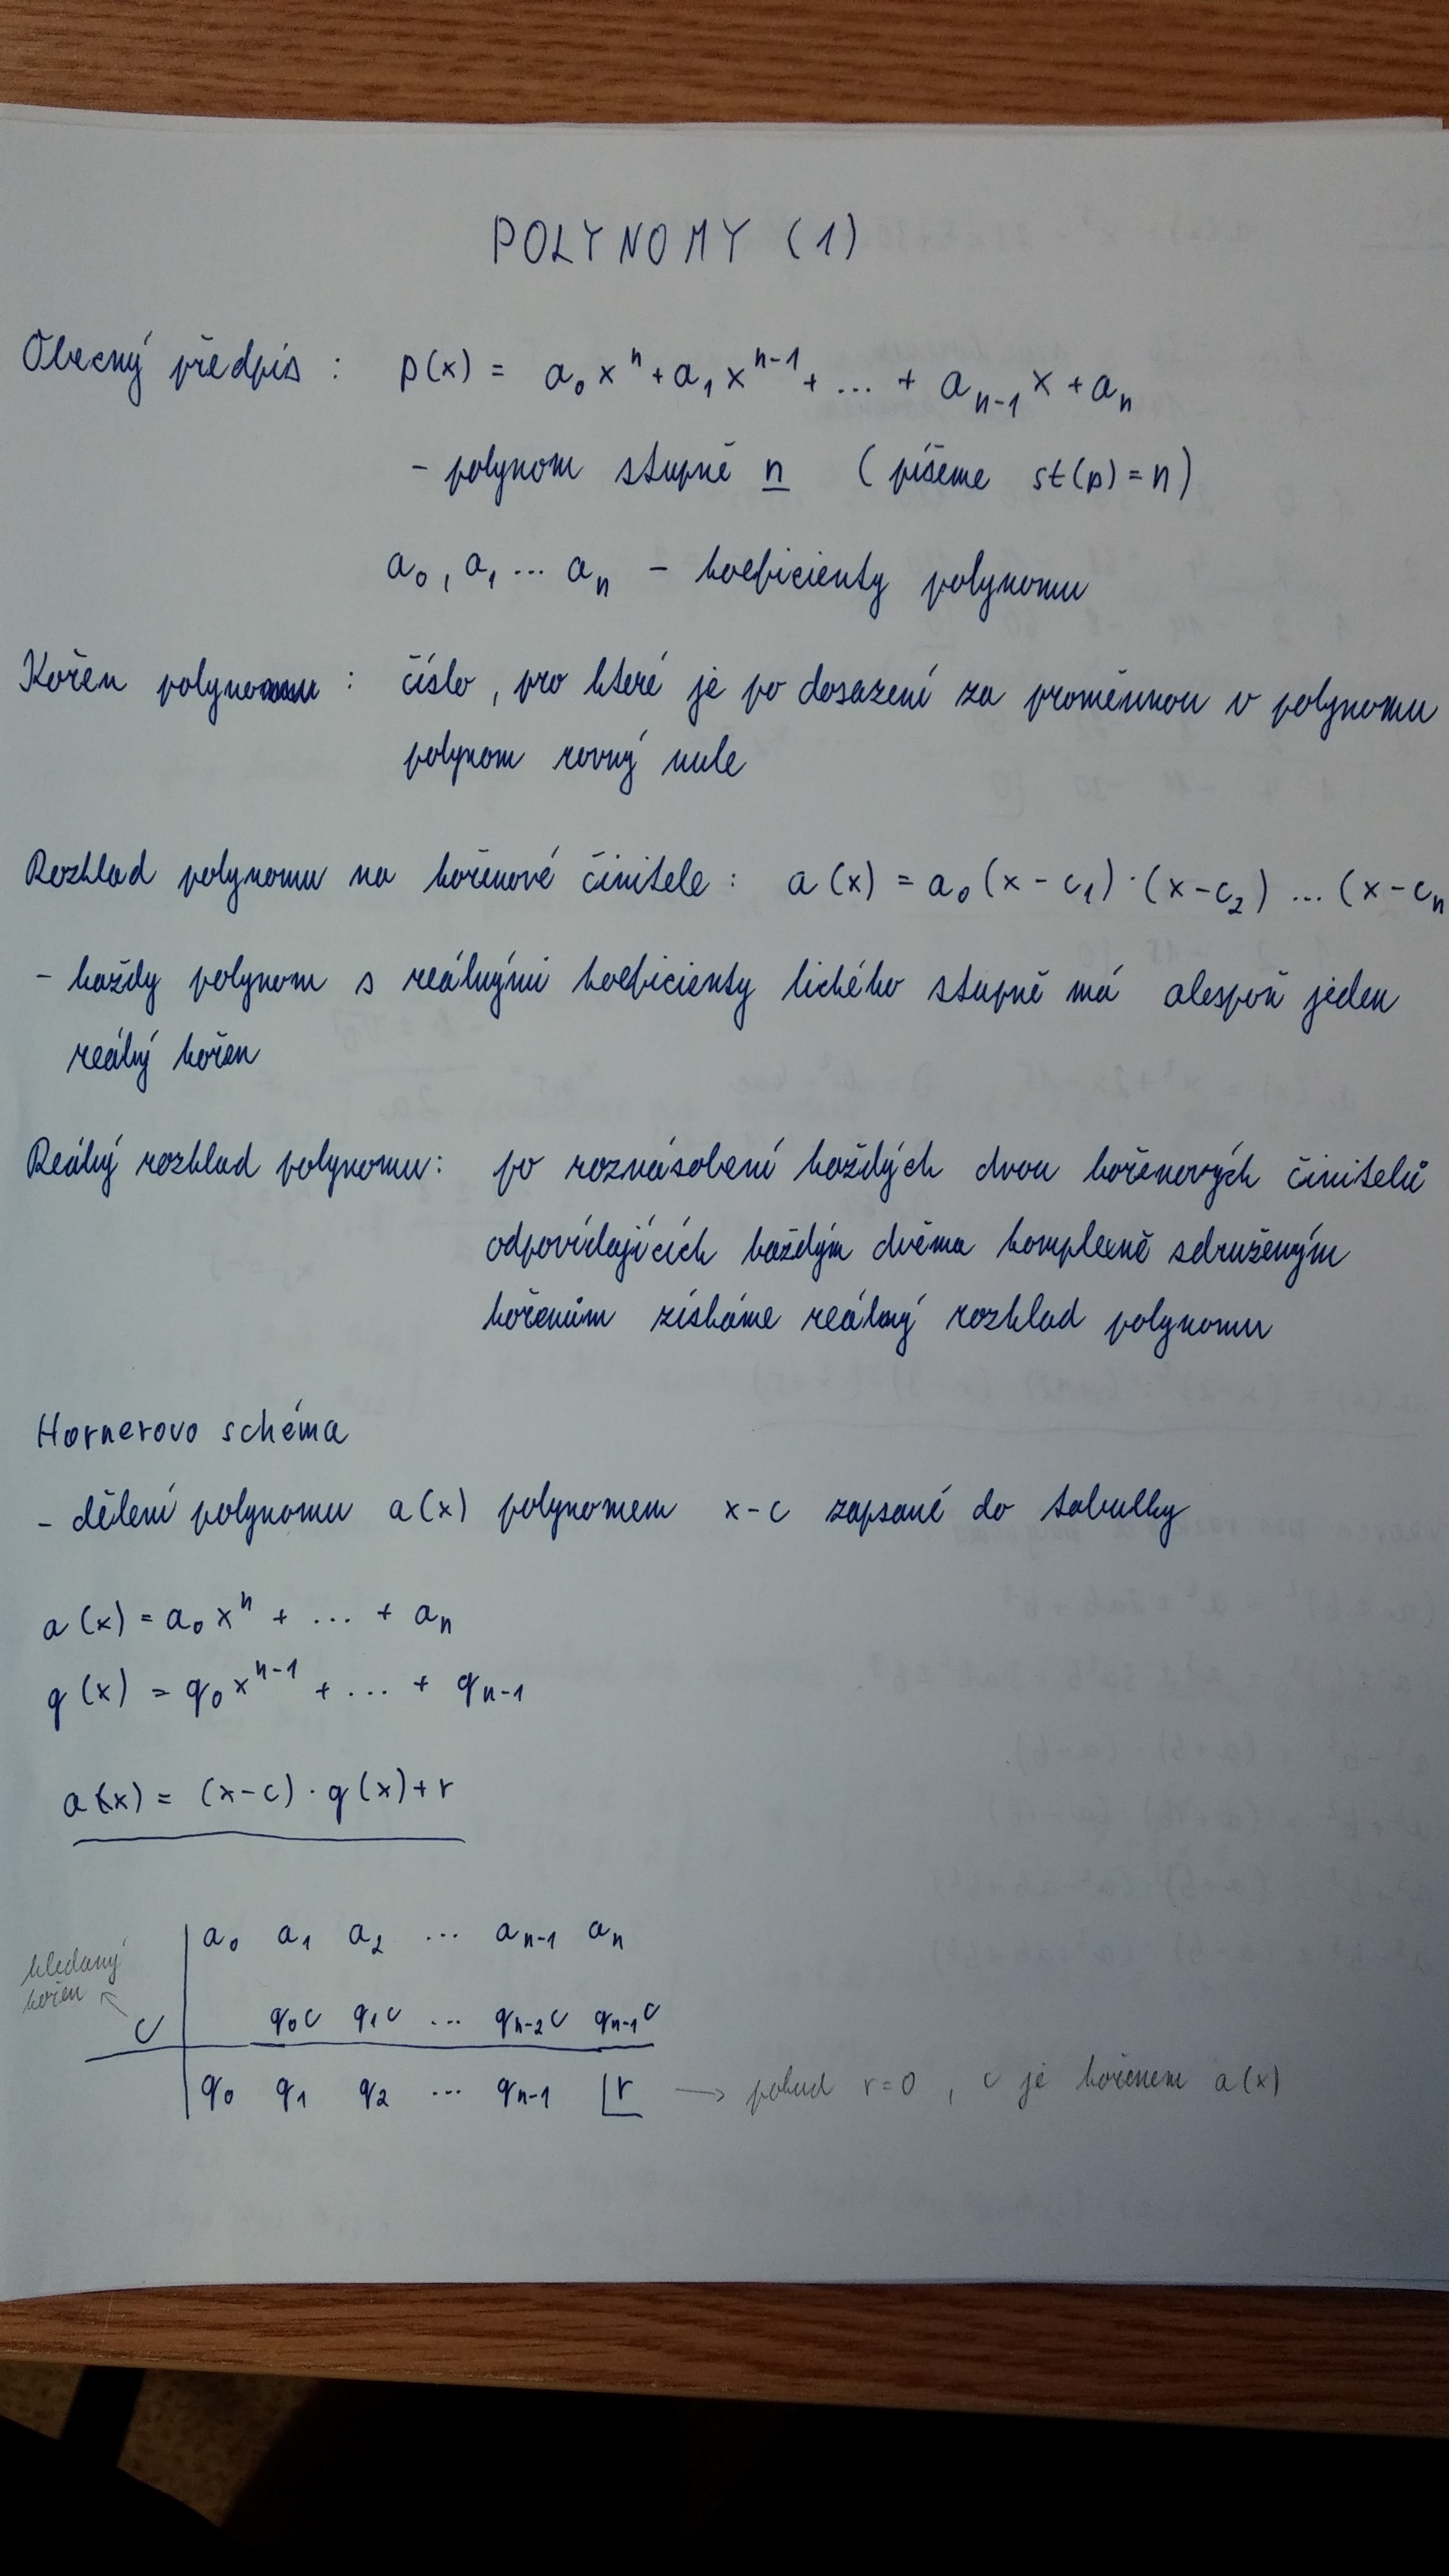 POLYNOMY (1)
Obecný předpis : p(x) = a₀xⁿ + a₁xⁿ⁻¹ + ... + aₙ₋₁x + aₙ
- polynom stupně n (píšeme st(p) = n)
a₀, a₁ ... aₙ - koeficienty polynomu
Kořen polynomu : číslo, pro které je po dosazení za proměnnou v polynomu
polynom rovný nule
Rozklad polynomu na kořenové činitele : a(x) = a₀(x - c₁)·(x - c₂) ... (x - cₙ
- každy polynom s reálnými koeficienty lichého stupně má alespoň jeden
reálný kořen
Reálný rozklad polynomu: po roznásobení každých dvou kořenových činitelů
odpovídajících každým dvěma komplexně sdruženým
kořenům získáme reálný rozklad polynomu
Hornerovo schéma
- dělení polynomu a(x) polynomem x-c zapsané do tabulky
a(x) = a₀xⁿ + ... + aₙ
q(x) = q₀xⁿ⁻¹ + ... + qₙ₋₁
a(x) = (x-c)·q(x)+r
a₀ a₁ a₂ ... aₙ₋₁ aₙ
hledaný
kořen
c q₀c q₁c ... qₙ₋₂c qₙ₋₁c
q₀ q₁ q₂ ... qₙ₋₁ r → pokud r=0, c je kořenem a(x)